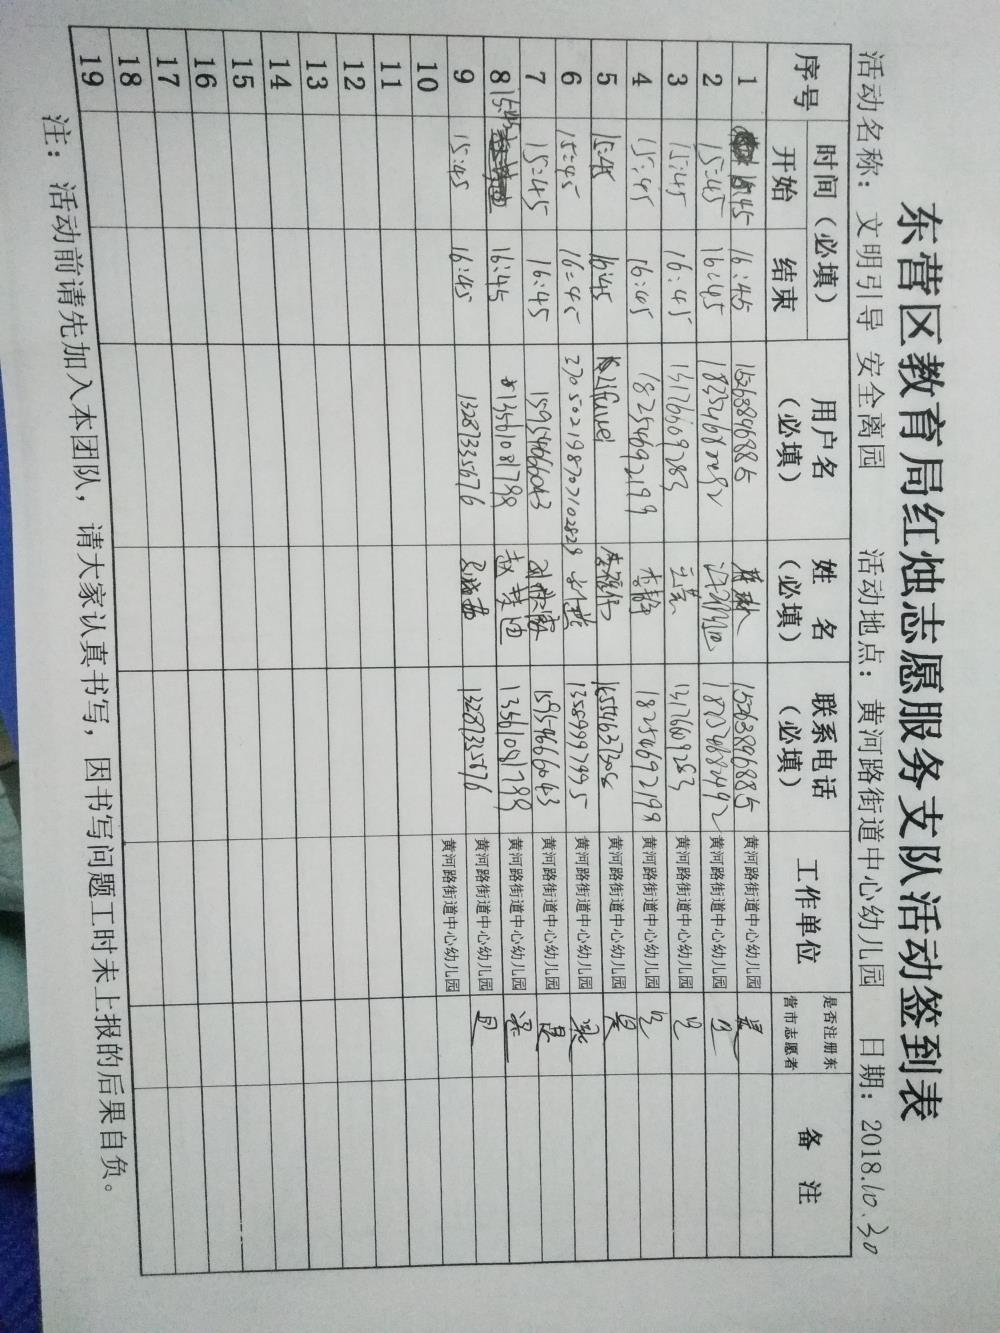 东营区教育局红烛志愿服务支队活动签到表
活动名称：文明引导 安全离园 活动地点：黄河路街道中心幼儿园 日期：2018.10.30
序号 时间（必填） 用户名（必填） 姓 名（必填） 联系电话（必填） 工作单位 是否注册东营市志愿者 备 注
开始 结束
1 15:45 16:45 15263896885 15263896885 黄河路街道中心幼儿园 是
2 15:45 16:45 黄河路街道中心幼儿园 是
3 15:45 16:45 13176609283 13176609283 黄河路街道中心幼儿园 是
4 15:45 16:45 18254692199 李静 18254692199 黄河路街道中心幼儿园 是
5 15:45 16:45 黄河路街道中心幼儿园 是
6 15:45 16:45 13589997995 黄河路街道中心幼儿园 是
7 15:45 16:45 15954666043 15954666043 黄河路街道中心幼儿园 是
8 15:45 16:45 13561081788 赵楚迪 13561081788 黄河路街道中心幼儿园 是
9 15:45 16:45 13287335676 13287335676 黄河路街道中心幼儿园 是
10 黄河路街道中心幼儿园
11
12
13
14
15
16
17
18
19
注：活动前请先加入本团队，请大家认真书写，因书写问题工时未上报的后果自负。